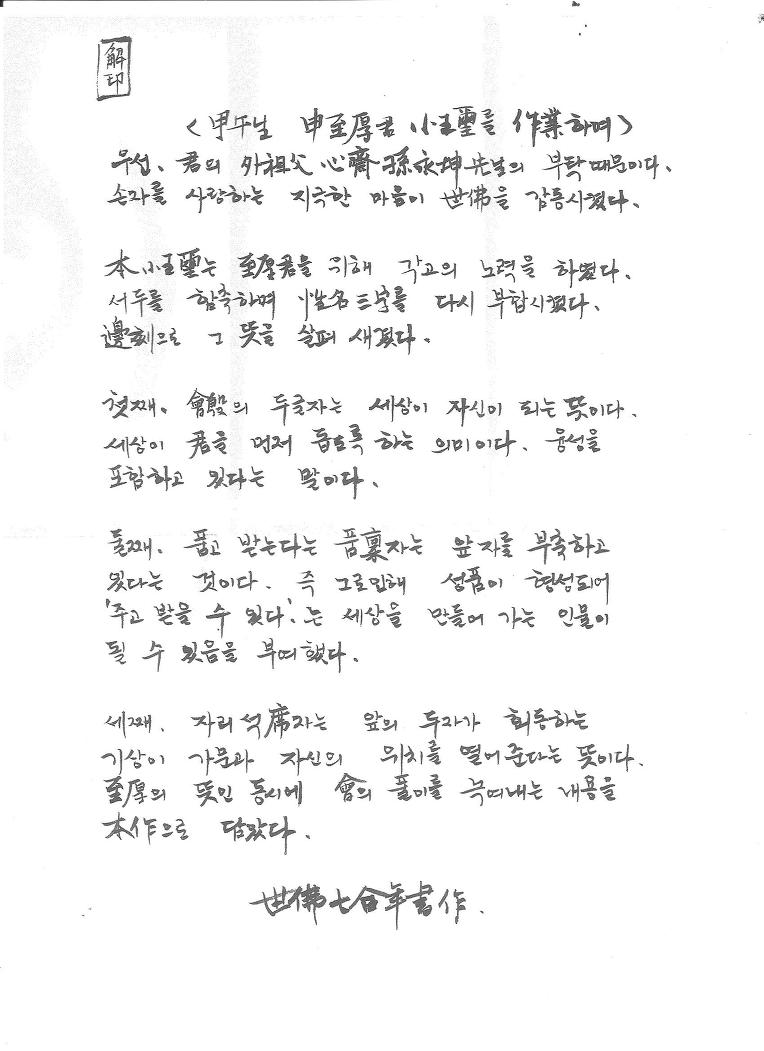 解印
<甲午生 申至厚君 小王璽를 作業하며>
우선, 君의 外祖父 心齊 孫永坤 先生의 부탁때문이다.
손자를 사랑하는 지극한 마음이 世佛을 감동시켰다.
本 小王璽는 至厚君을 위해 각고의 노력을 하였다.
서두를 함축하며 姓名三字를 다시 부합시켰다.
邊刻으로 그 뜻을 살펴 새겼다.
첫째. 會의 두글자는 세상이 자신이 되는 뜻이다.
세상이 君을 먼저 돕도록 하는 의미이다. 융성을
포함하고 있다는 말이다.
둘째. 품고 받는다는 품稟자는 앞자를 부축하고
있다는 것이다. 즉 그로인해 성품이 형성되어
'주고 받을 수 있다'.는 세상을 만들어 가는 인물이
될 수 있음을 부여했다.
세째. 자리석席자는 앞의 두자가 회동하는
기상이 가문과 자신의 위치를 떨어준다는 뜻이다.
至厚의 뜻인 동시에 會의 풀이를 녹여내는 내용을
本作으로 담았다.
世佛 七合年書作.